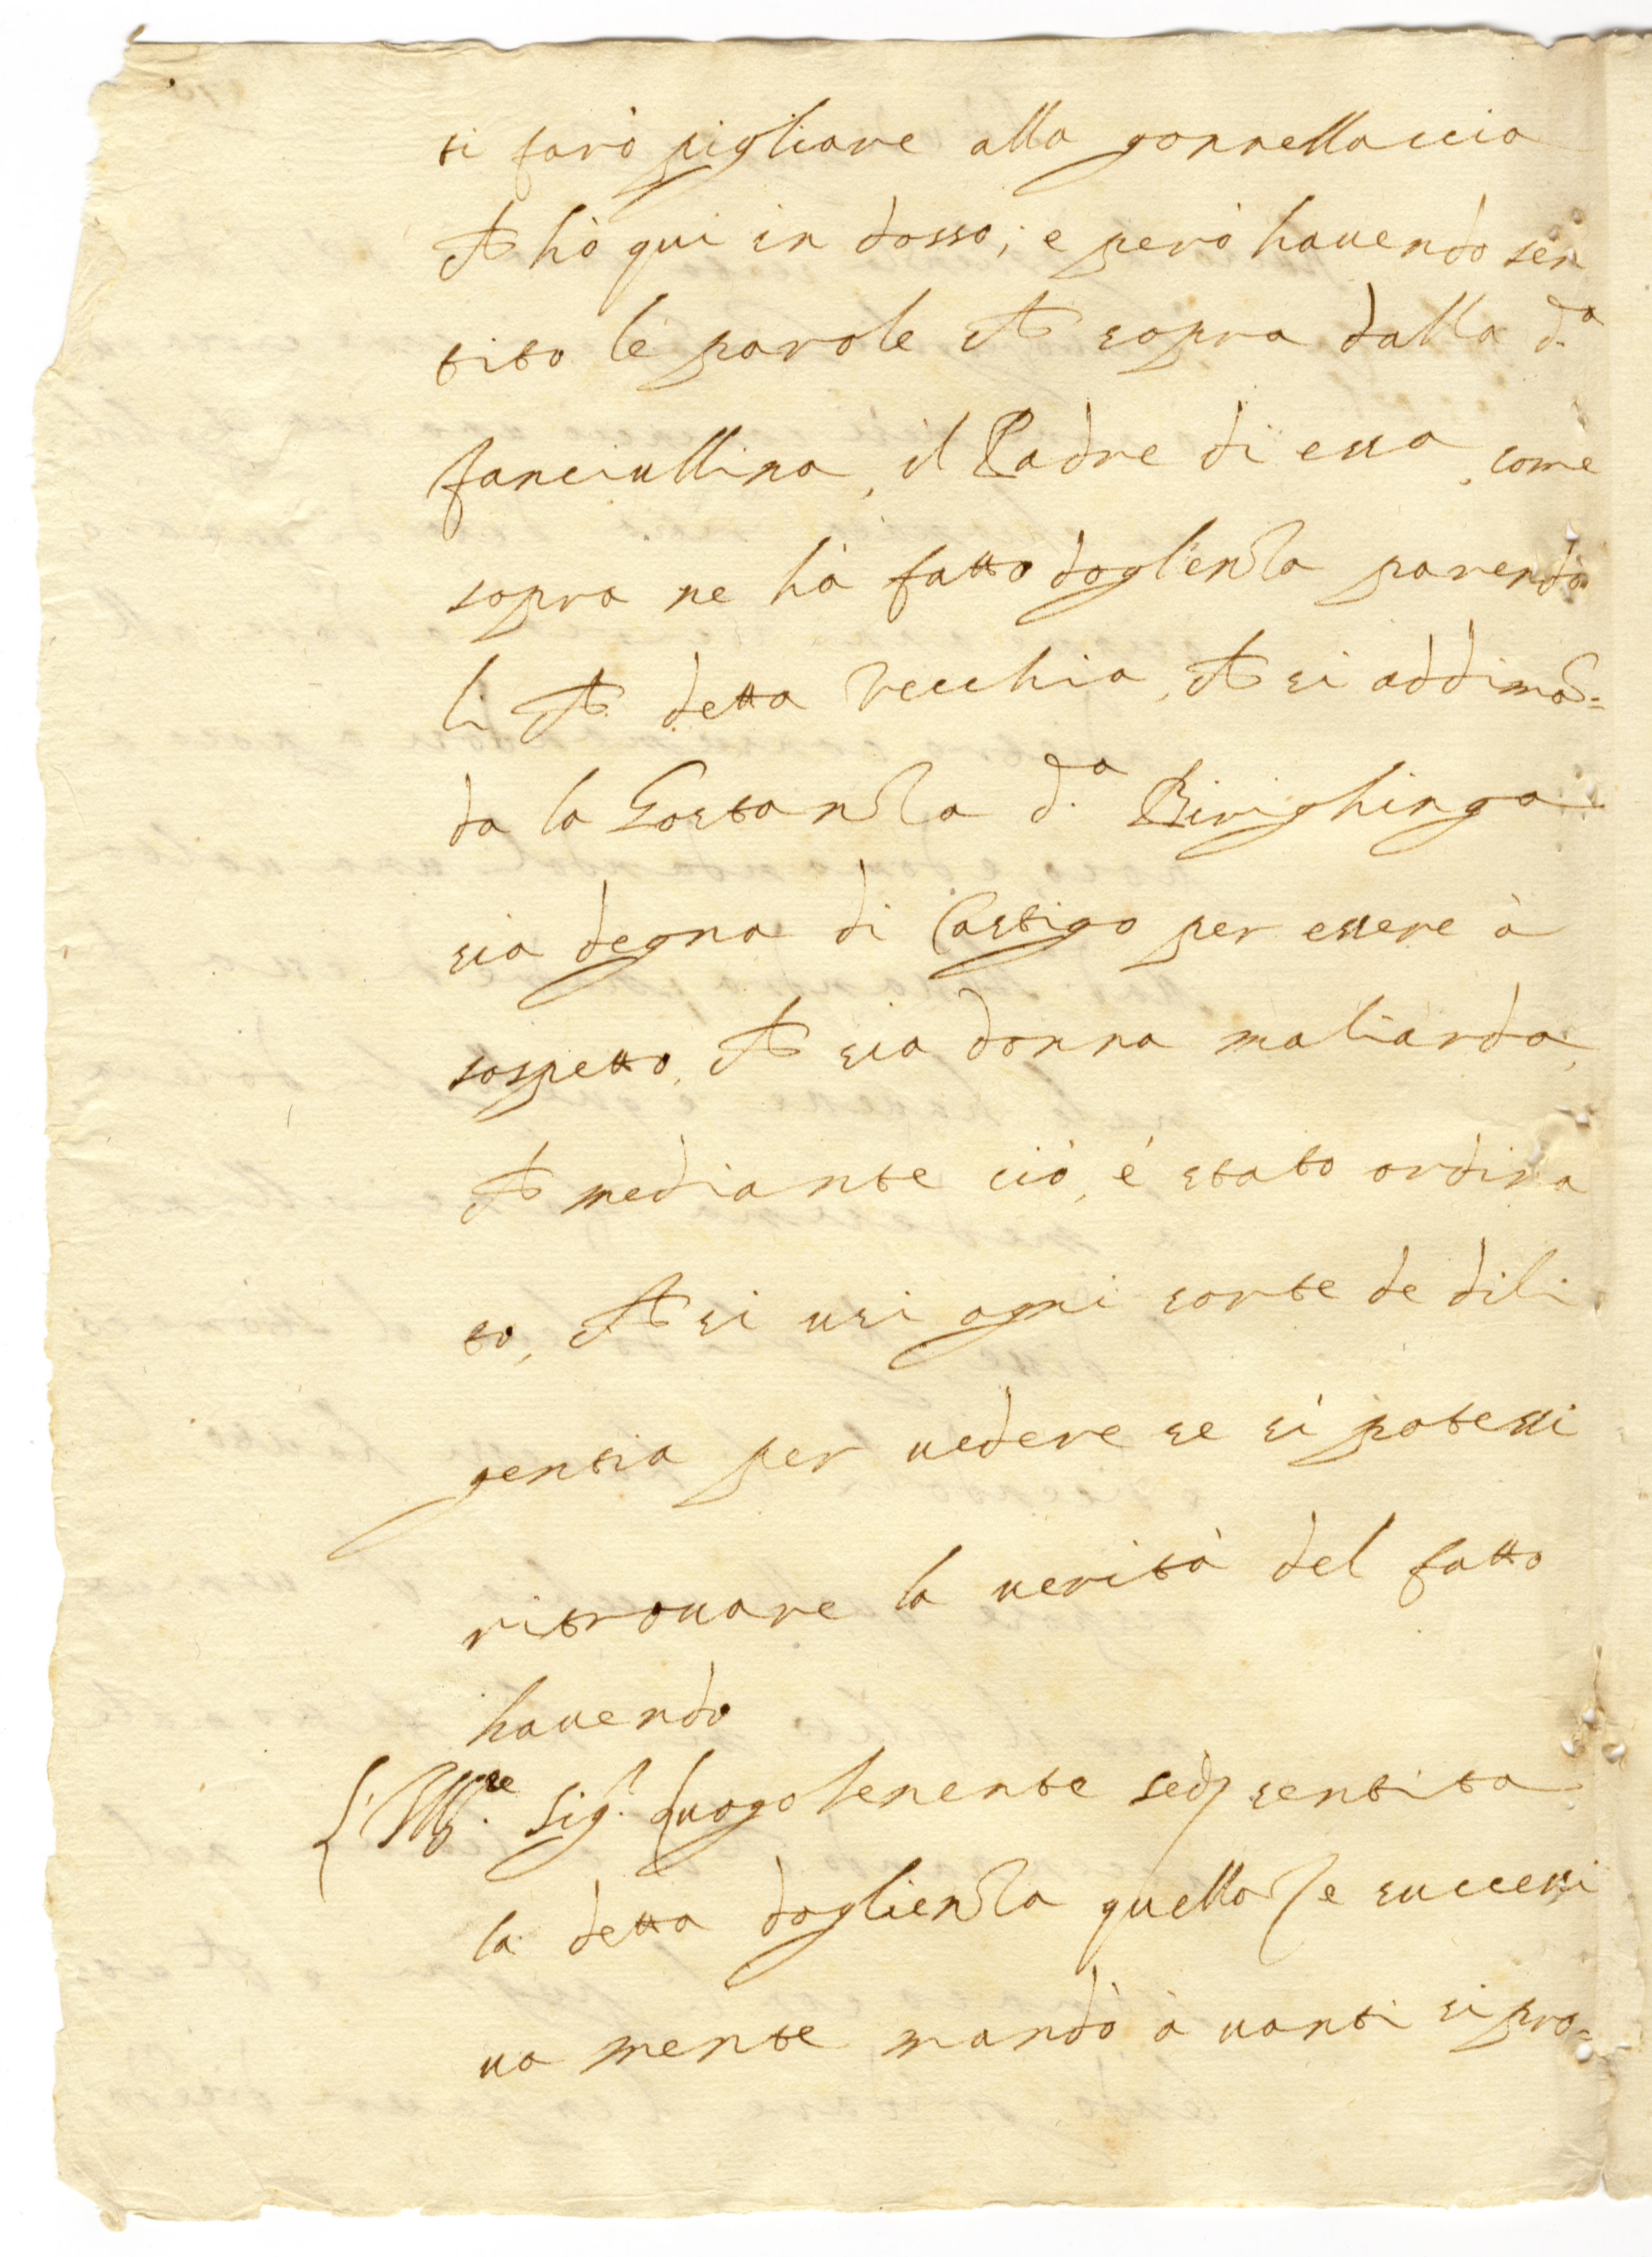 ti farò pigliare alla gonnellaccia
ch hò qui in dosso; e però hauendo sen
tito le parole ch sopra dalla d.a
fanciullina, il Padre di essa, come
sopra ne hà fatto doglienza parendo
li ch detta Vecchia, ch si addima=
da la Gostanza d.a Birighinga
sia degna di Castigo per essere à
sospetto, ch sia donna maliarda,
ch mediante ciò, é stato ordina
to, ch si usi ogni sorte de dili
gentia per uedere se si potessi
ritrouare la uerità del fatto
hauendo
L'Ill.re Sig.r Luogotenente sentita
la detta doglienza quella e successi
ua mente mandò à uanti si pro=